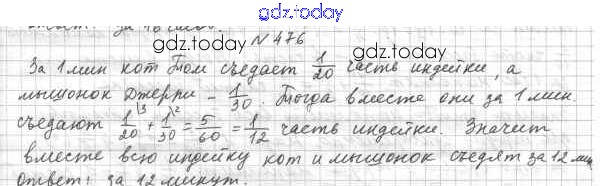 gdz.today
ответ: за 16 часов.
gdz.today № 476 gdz.today
За 1 мин кот Том съедает 1/20 часть индейки, а
мышонок Джерри – 1/30. Тогда вместе они за 1 мин.
съедают 1/20 \3 + 1/30 \2 = 5/60 = 1/12 часть индейки. Значит
вместе всю индейку кот и мышонок съедят за 12 мин
ответ: за 12 минут.